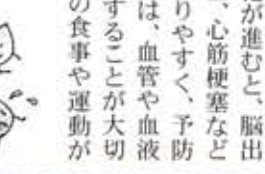 が進むと、脳出
、心筋梗塞など
りやすく、予防
は、血管や血液
することが大切
の食事や運動が